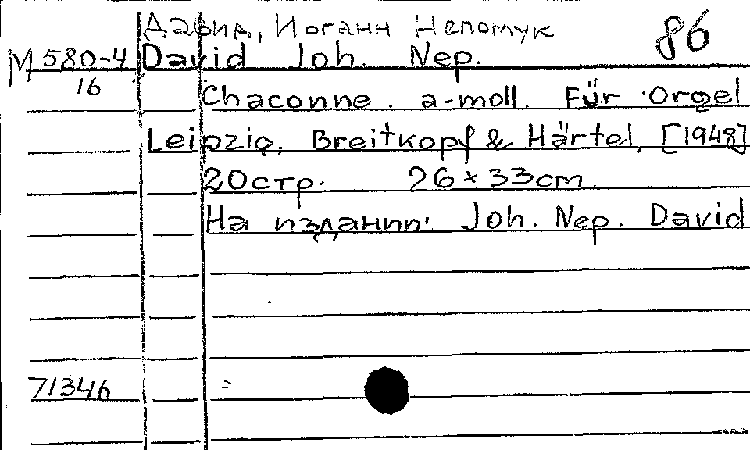 Давид, Иоганн Непомук 86
М 580-4 David Joh. Nep.
16
Chaconne. a-moll. Für Orgel
Leipzig, Breitkopf & Härtel, [1948]
20стр. 26 x 33cm
На издании: Joh. Nep. David
71346